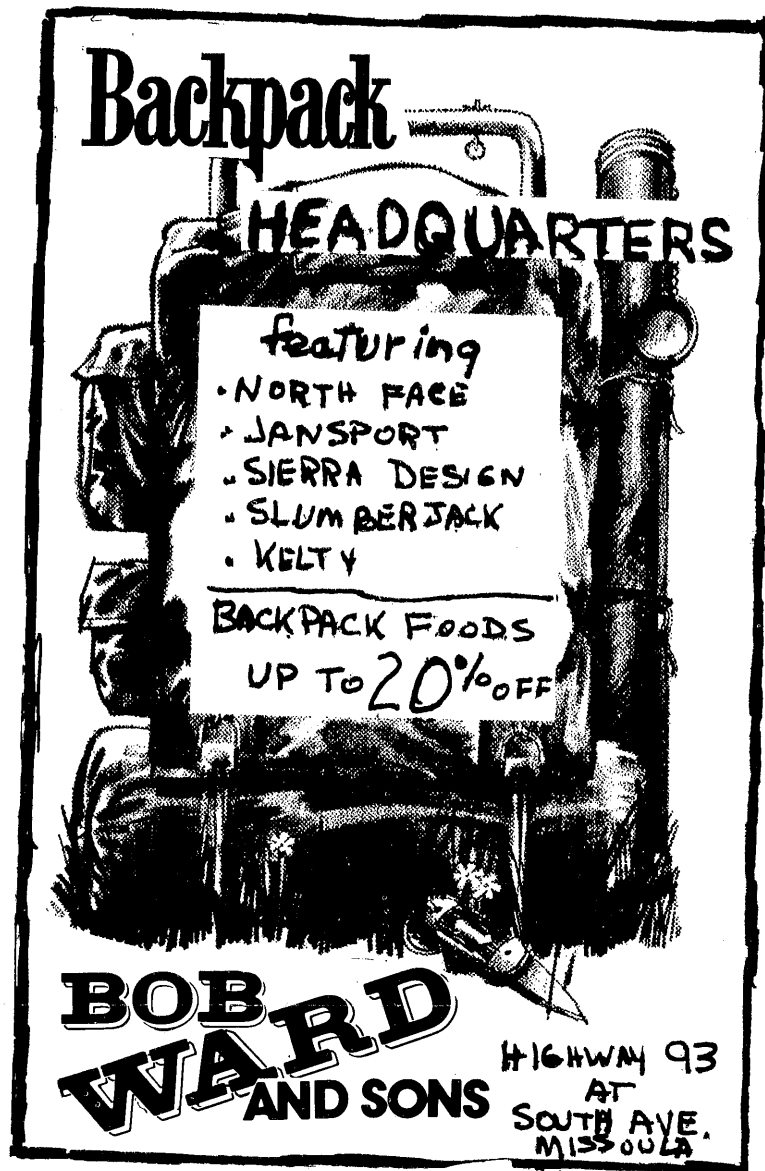 Backpack
HEADQUARTERS
featuring
• NORTH FACE
• JANSPORT
• SIERRA DESIGN
• SLUMBERJACK
• KELTY
BACKPACK FOODS
UP TO 20% OFF
BOB
WARD
AND SONS
HIGHWAY 93
AT
SOUTH AVE.
MISSOULA